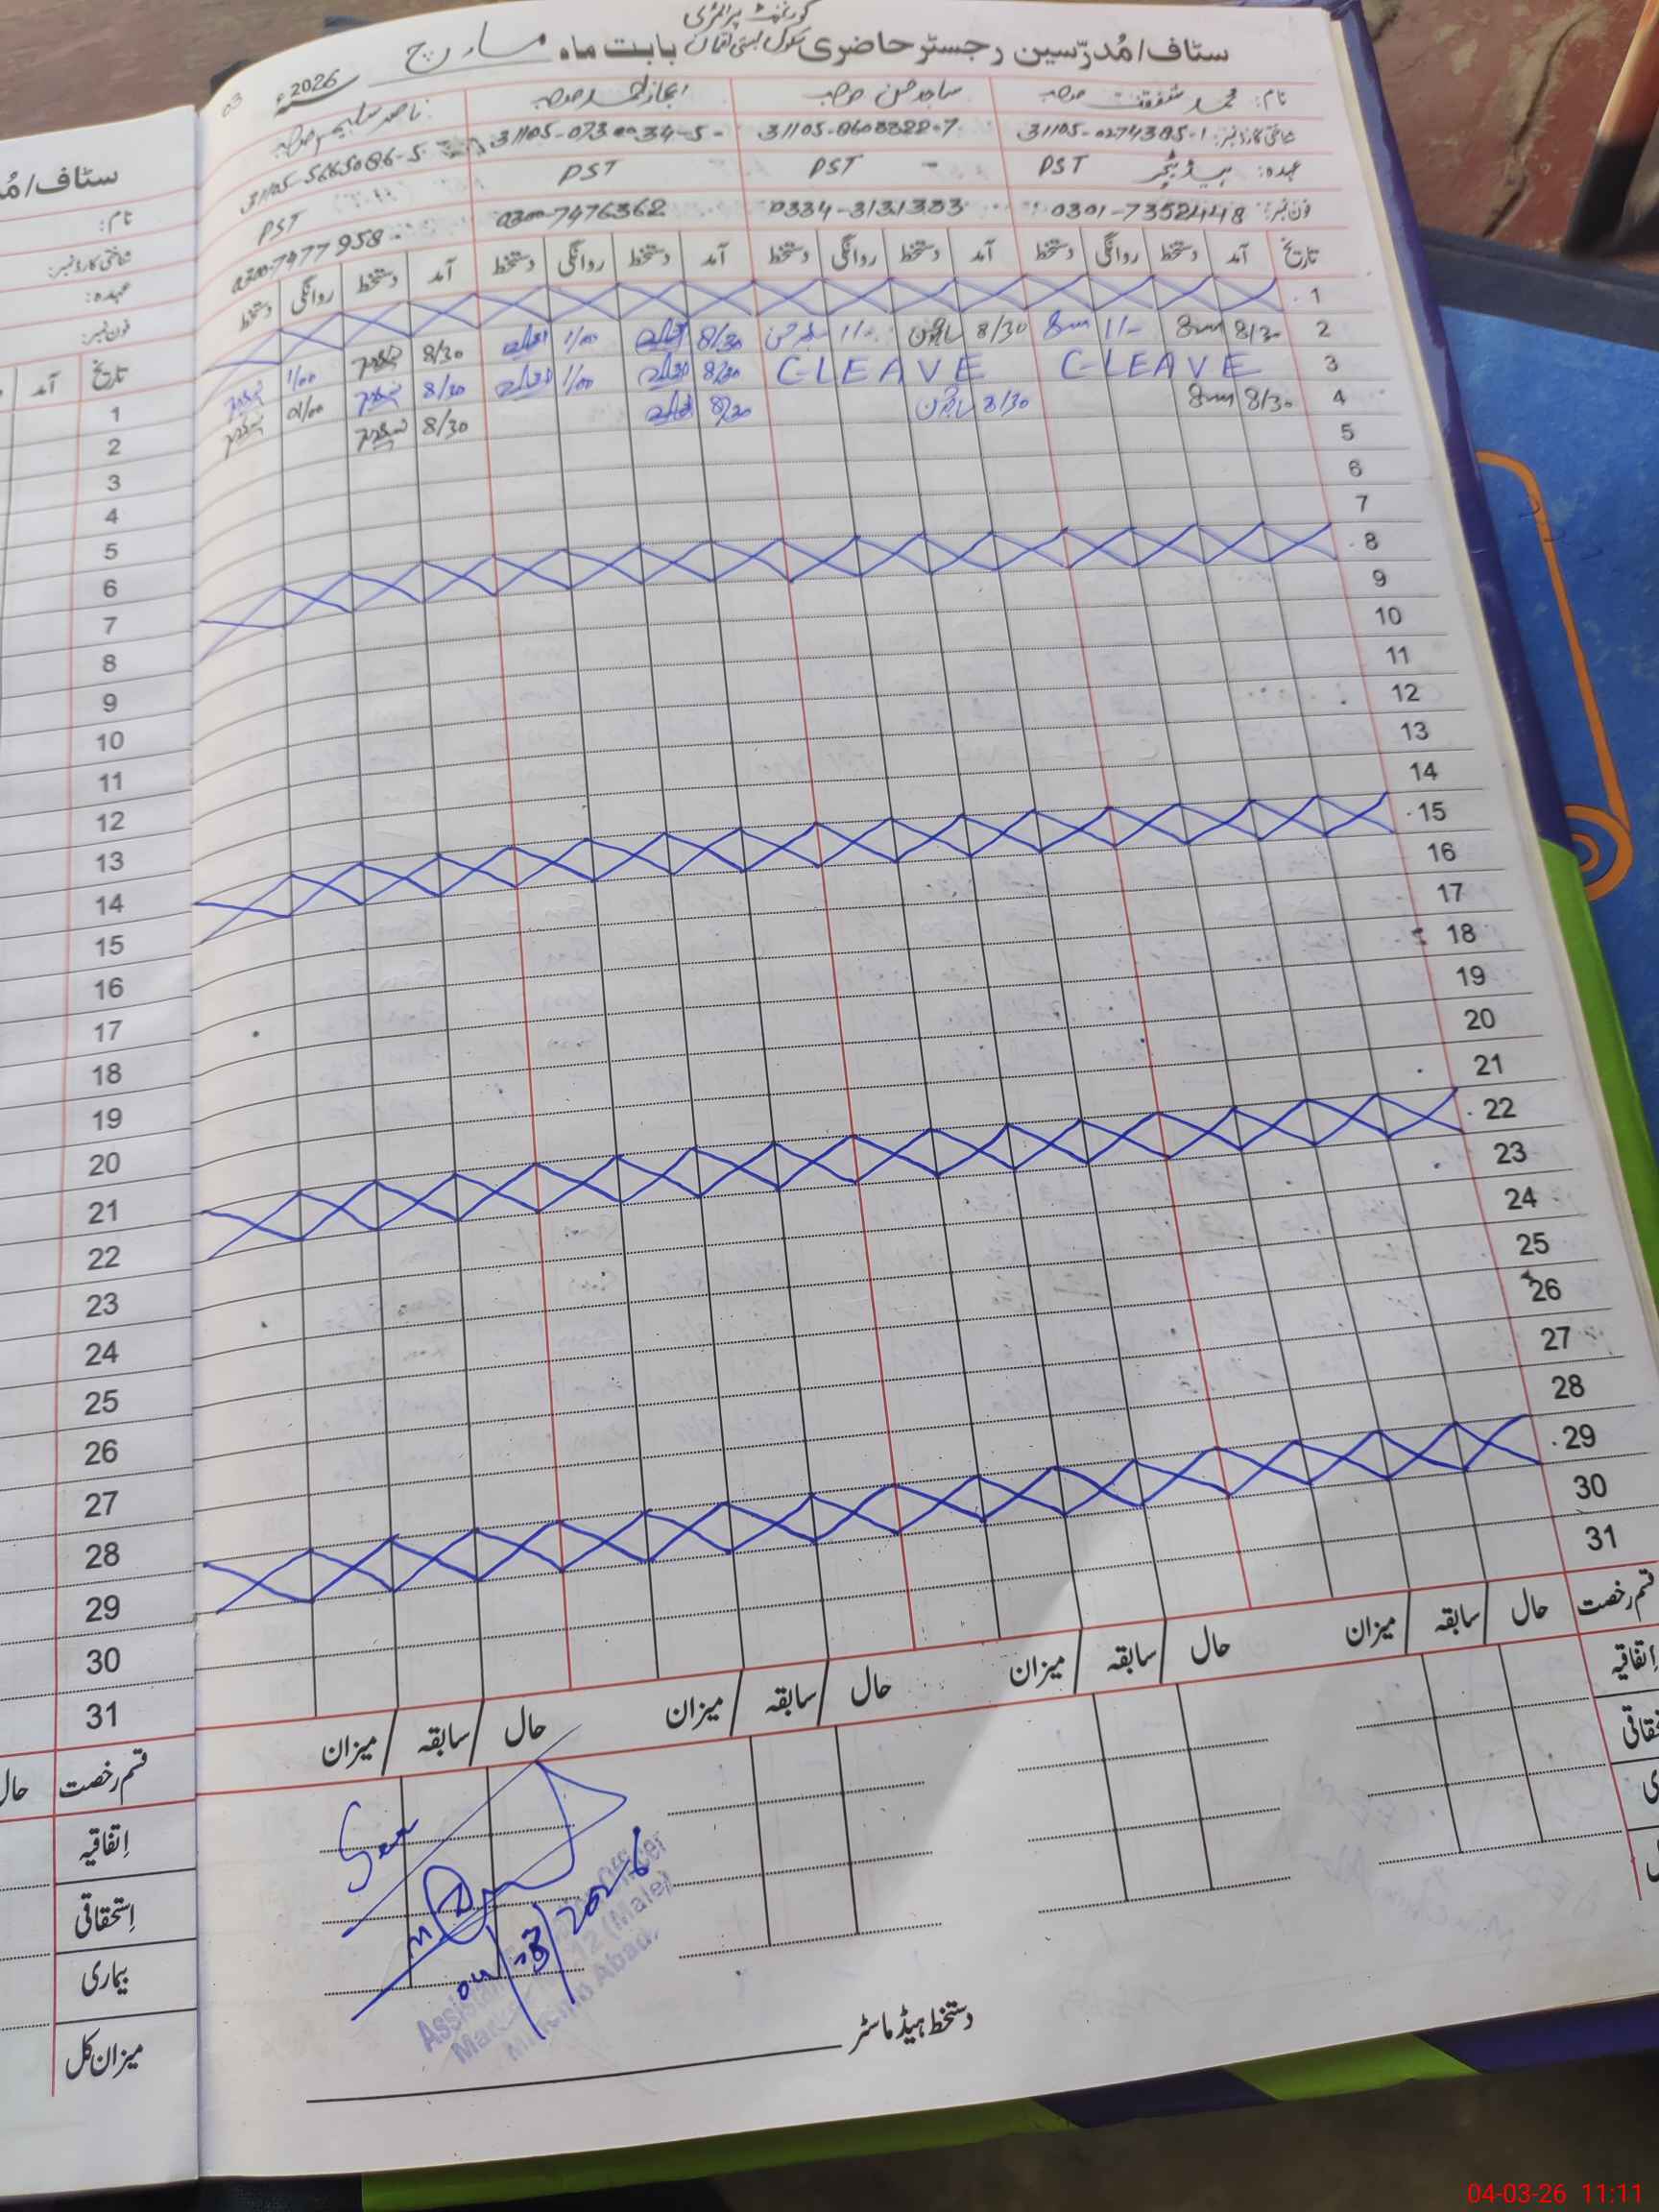 گورنمنٹ پرائمری
سٹاف/مُدرّسین رجسٹر حاضری سکول بستی لقمان بابت ماہ مارچ 2026ء
03
نام: محمد شفقت صاحب ساجد حسن صاحب اعجاز احمد صاحب ناصر سلیم صاحب
شناختی کارڈ نمبر: 31105-0274385-1 31105-8608322-7 31105-073 34-5 31105-5665086-5
عہدہ: ہیڈ ٹیچر PST PST PST PST
فون نمبر: 0301-7352448 0334-3131333 0300-7476362 0300-7477958
تاریخ آمد دستخط روانگی دستخط آمد دستخط روانگی دستخط آمد دستخط روانگی دستخط آمد دستخط روانگی دستخط
1
2 8/30 11/- 8/30 11/- 8/30 1/00 8/30 1/00
3 C-LEAVE C-LEAVE 8/30 1/00 8/30 01/00
4 8/30 8/30 8/30 8/30
5
6
7
8
9
10
11
12
13
14
15
16
17
18
19
20
21
22
23
24
25
26
27
28
29
30
31
قسم رخصت حال / سابقہ / میزان حال / سابقہ / میزان حال / سابقہ / میزان حال / سابقہ / میزان
اِتفاقیہ
Seen
04/03/2026
Officer
12 (Male)
Abad
دستخط ہیڈ ماسٹر
سٹاف/مُد
نام:
شناختی کارڈ نمبر:
عہدہ:
فون نمبر:
تاریخ آمد
1
2
3
4
5
6
7
8
9
10
11
12
13
14
15
16
17
18
19
20
21
22
23
24
25
26
27
28
29
30
31
قسم رخصت حال
اِتفاقیہ
اِستحقاقی
بیماری
میزان کل
04-03-26 11:11